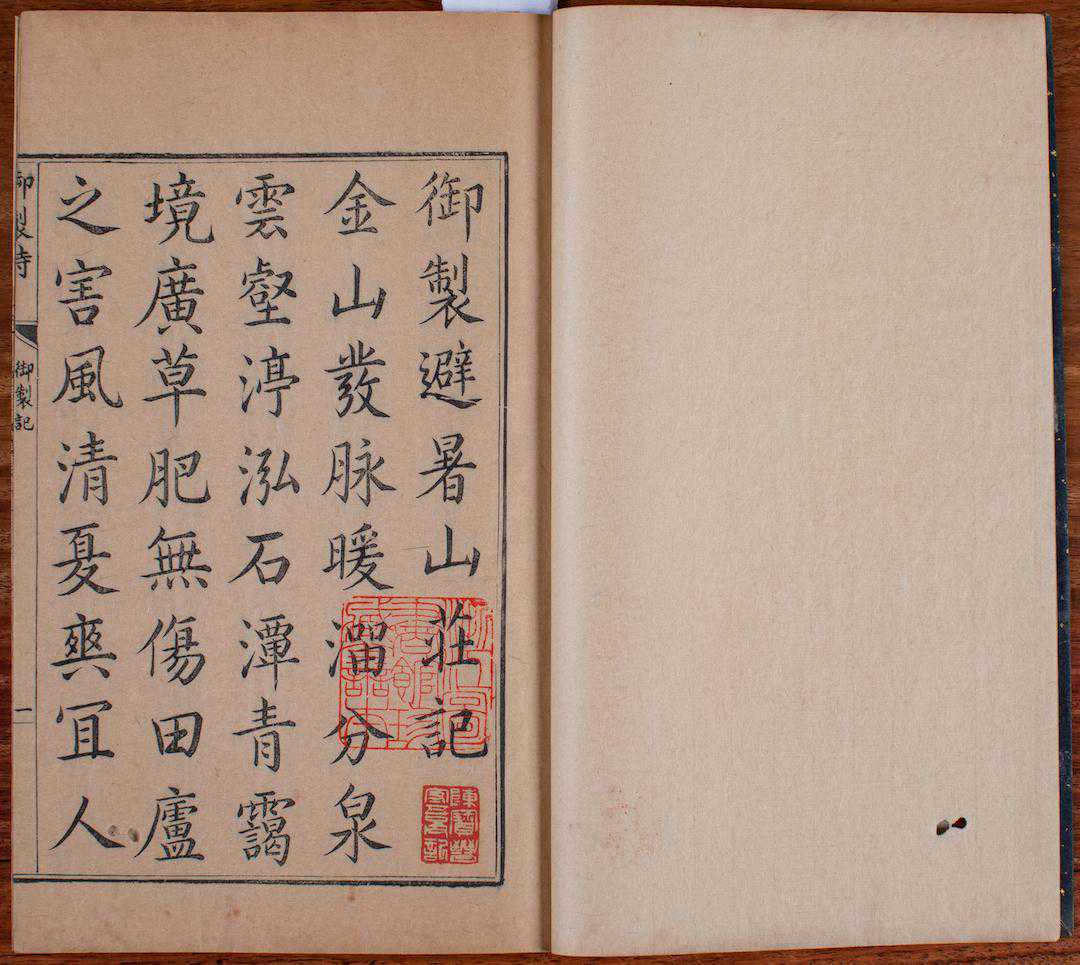 御製避暑山莊記
金山發脉暖澑分泉
雲壑渟泓石潭青靄
境廣草肥無傷田廬
之害風清夏爽冝人
御製詩
御製記
一